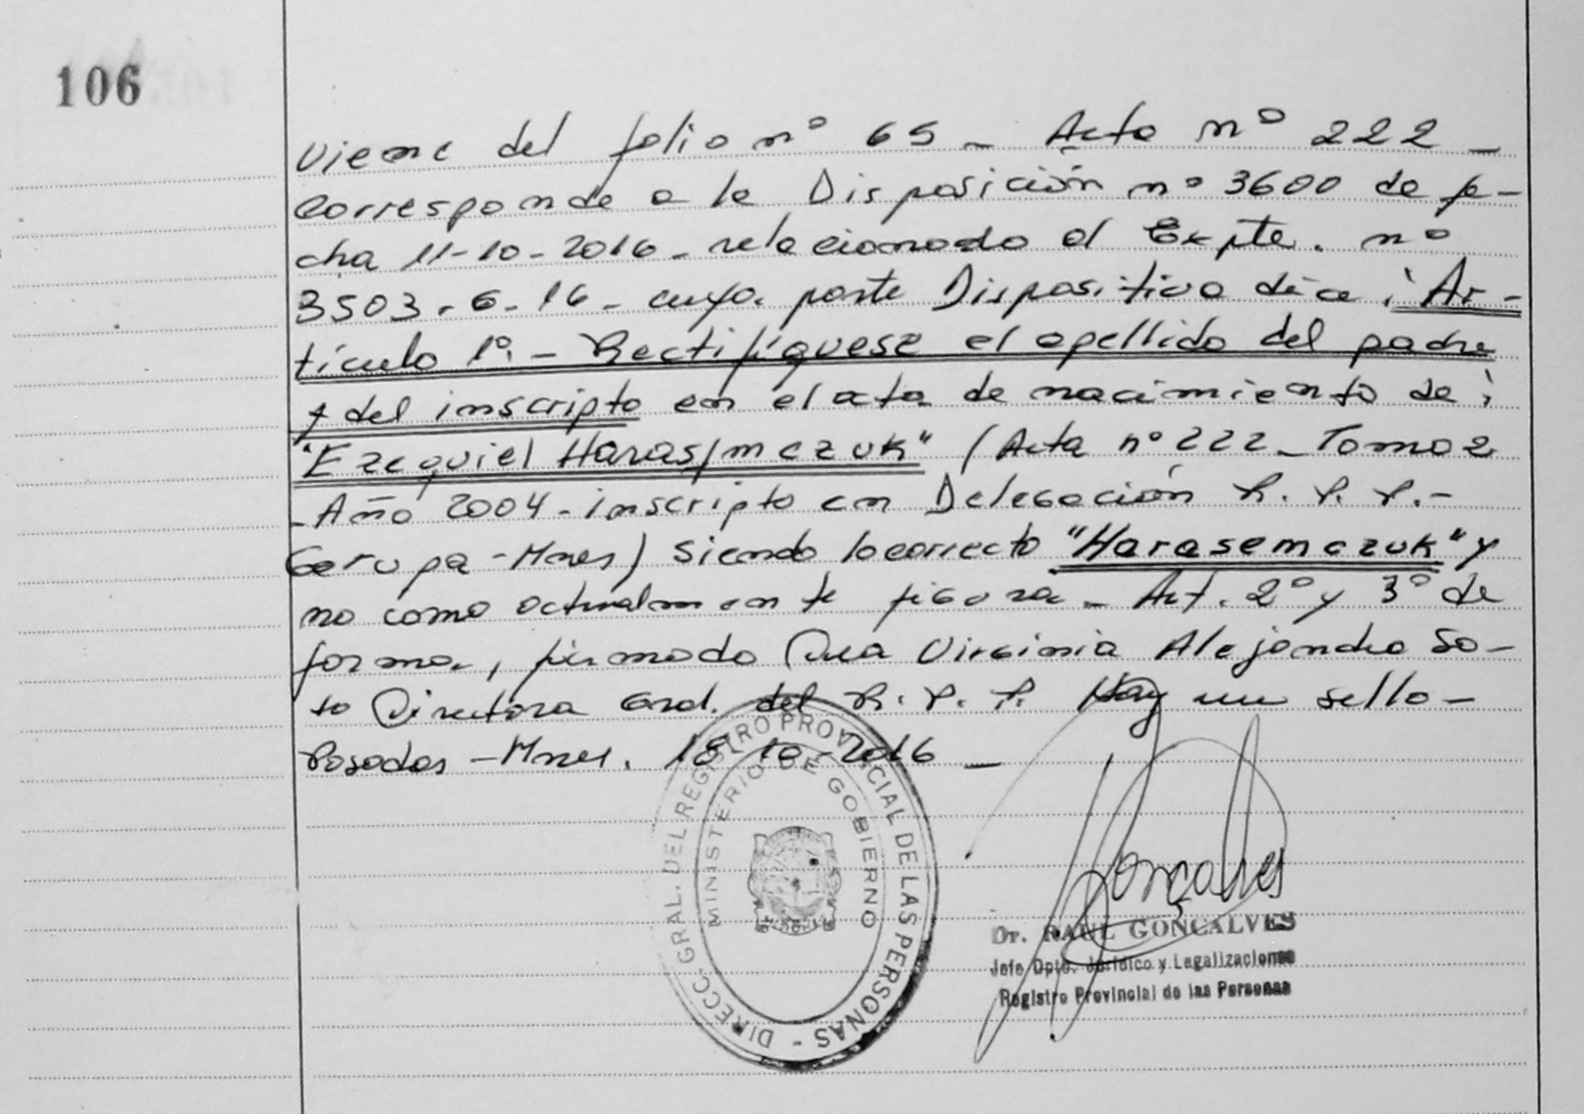 106
Viene del folio nº 65 - Acta nº 222 -
corresponde a la Disposición nº 3600 de fe-
cha 11-10-2016 - relacionado al Expte. nº
3503-6-16 - cuya parte Dispositiva dice: Ar-
tículo 1º. - Rectifíquese el apellido del padre
y del inscripto en el acta de nacimiento de:
"Ezequiel Harasimczuk" (Acta nº 222 - Tomo 2
- Año 2004 - inscripto en Delegación R. P. P. -
Garupa - Mnes) siendo lo correcto "Harasemczuk" y
no como actualmente figura - Art. 2º y 3º de
forma, firmado Dra Virginia Alejandra So-
to Directora Gral. del R. P. P. Hay un sello -
Posadas - Mnes. 18-10-2016 -
DIRECC. GRAL. DEL REGISTRO PROVINCIAL DE LAS PERSONAS -
MINISTERIO DE GOBIERNO
Gonçalves
Dr. RAUL GONÇALVES
Jefe Dpto. Jurídico y Legalizaciones
Registro Provincial de las Personas